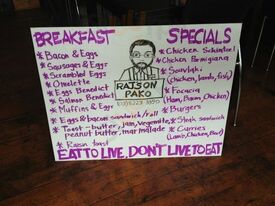 BREAKFAST
* Bacon & Eggs
* Sausages & Eggs
* Scrambled Eggs
* Omelette
* Eggs Benedict
* Salmon Benedict
* Muffins & Eggs
* Eggs & bacon sandwich/roll
* Toast - butter, jam, vegemite,
peanut butter, marmalade
* Raisin toast
RAJSON
PAKO
SPECIALS
* Chicken Schnitzel
* Chicken Parmigiana
* Souvlaki
(Chicken, lamb, fish)
* Focacia
(Ham, Bacon, Chicken)
* Burgers
* Steak sandwich
* Curries
(Lamb, Chicken, Beef)
EAT TO LIVE, DON'T LIVE TO EAT